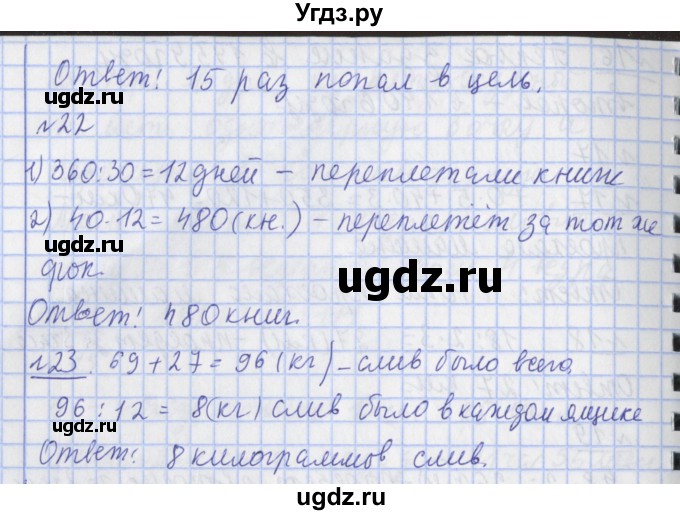 Угдз.ру
Ответ! 15 раз попал в цель.
ugdz.ru
ugdz.ru
№22
1) 360:30=12 дней – переплетали книж
2) 40·12=480(кн.) – переплетёт за тот же
ugdz.ru
срок.
ugdz.ru
Ответ! 480 книг.
№23. 69+27=96(кг) – слив было всего.
ugdz.ru
96:12=8(кг) слив было в каждом ящике
Ответ! 8 килограммов слив.
ugdz.ru
ugdz.ru